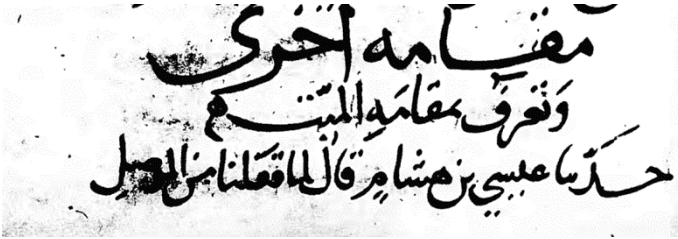 مقامه أخرى
وتعرف بمقامة الميت
حدثنا عيسى بن هشام قال لما قفلنا من الموصل